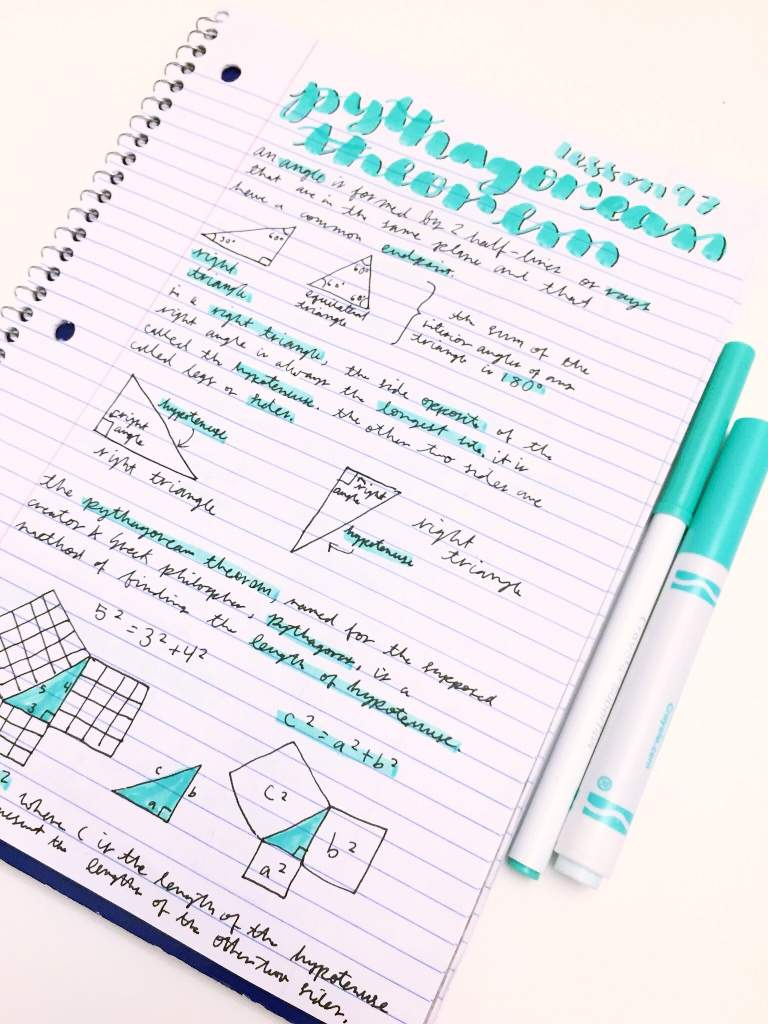 lesson 97
pythagorean
theorem
an angle is formed by 2 half-lines or rays
that are in the same plane and that
have a common endpoint.
30°
60°
right
triangle
60°
60°
60°
equilateral
triangle
the sum of the
interior angles of any
triangle is 180°
in a right triangle, the side opposite of the
right angle is always the longest side. it is
called the hypotenuse. the other two sides are
called legs or sides.
right
angle
hypotenuse
right triangle
right
angle
hypotenuse
right
triangle
the pythagorean theorem, named for the supposed
creator & greek philosopher, pythagoras, is a
method of finding the length of hypotenuse.
5² = 3² + 4²
5
4
3
c² = a² + b²
c
b
a
c²
b²
a²
2
where c is the length of the hypotenuse
the lengths of the other two sides.